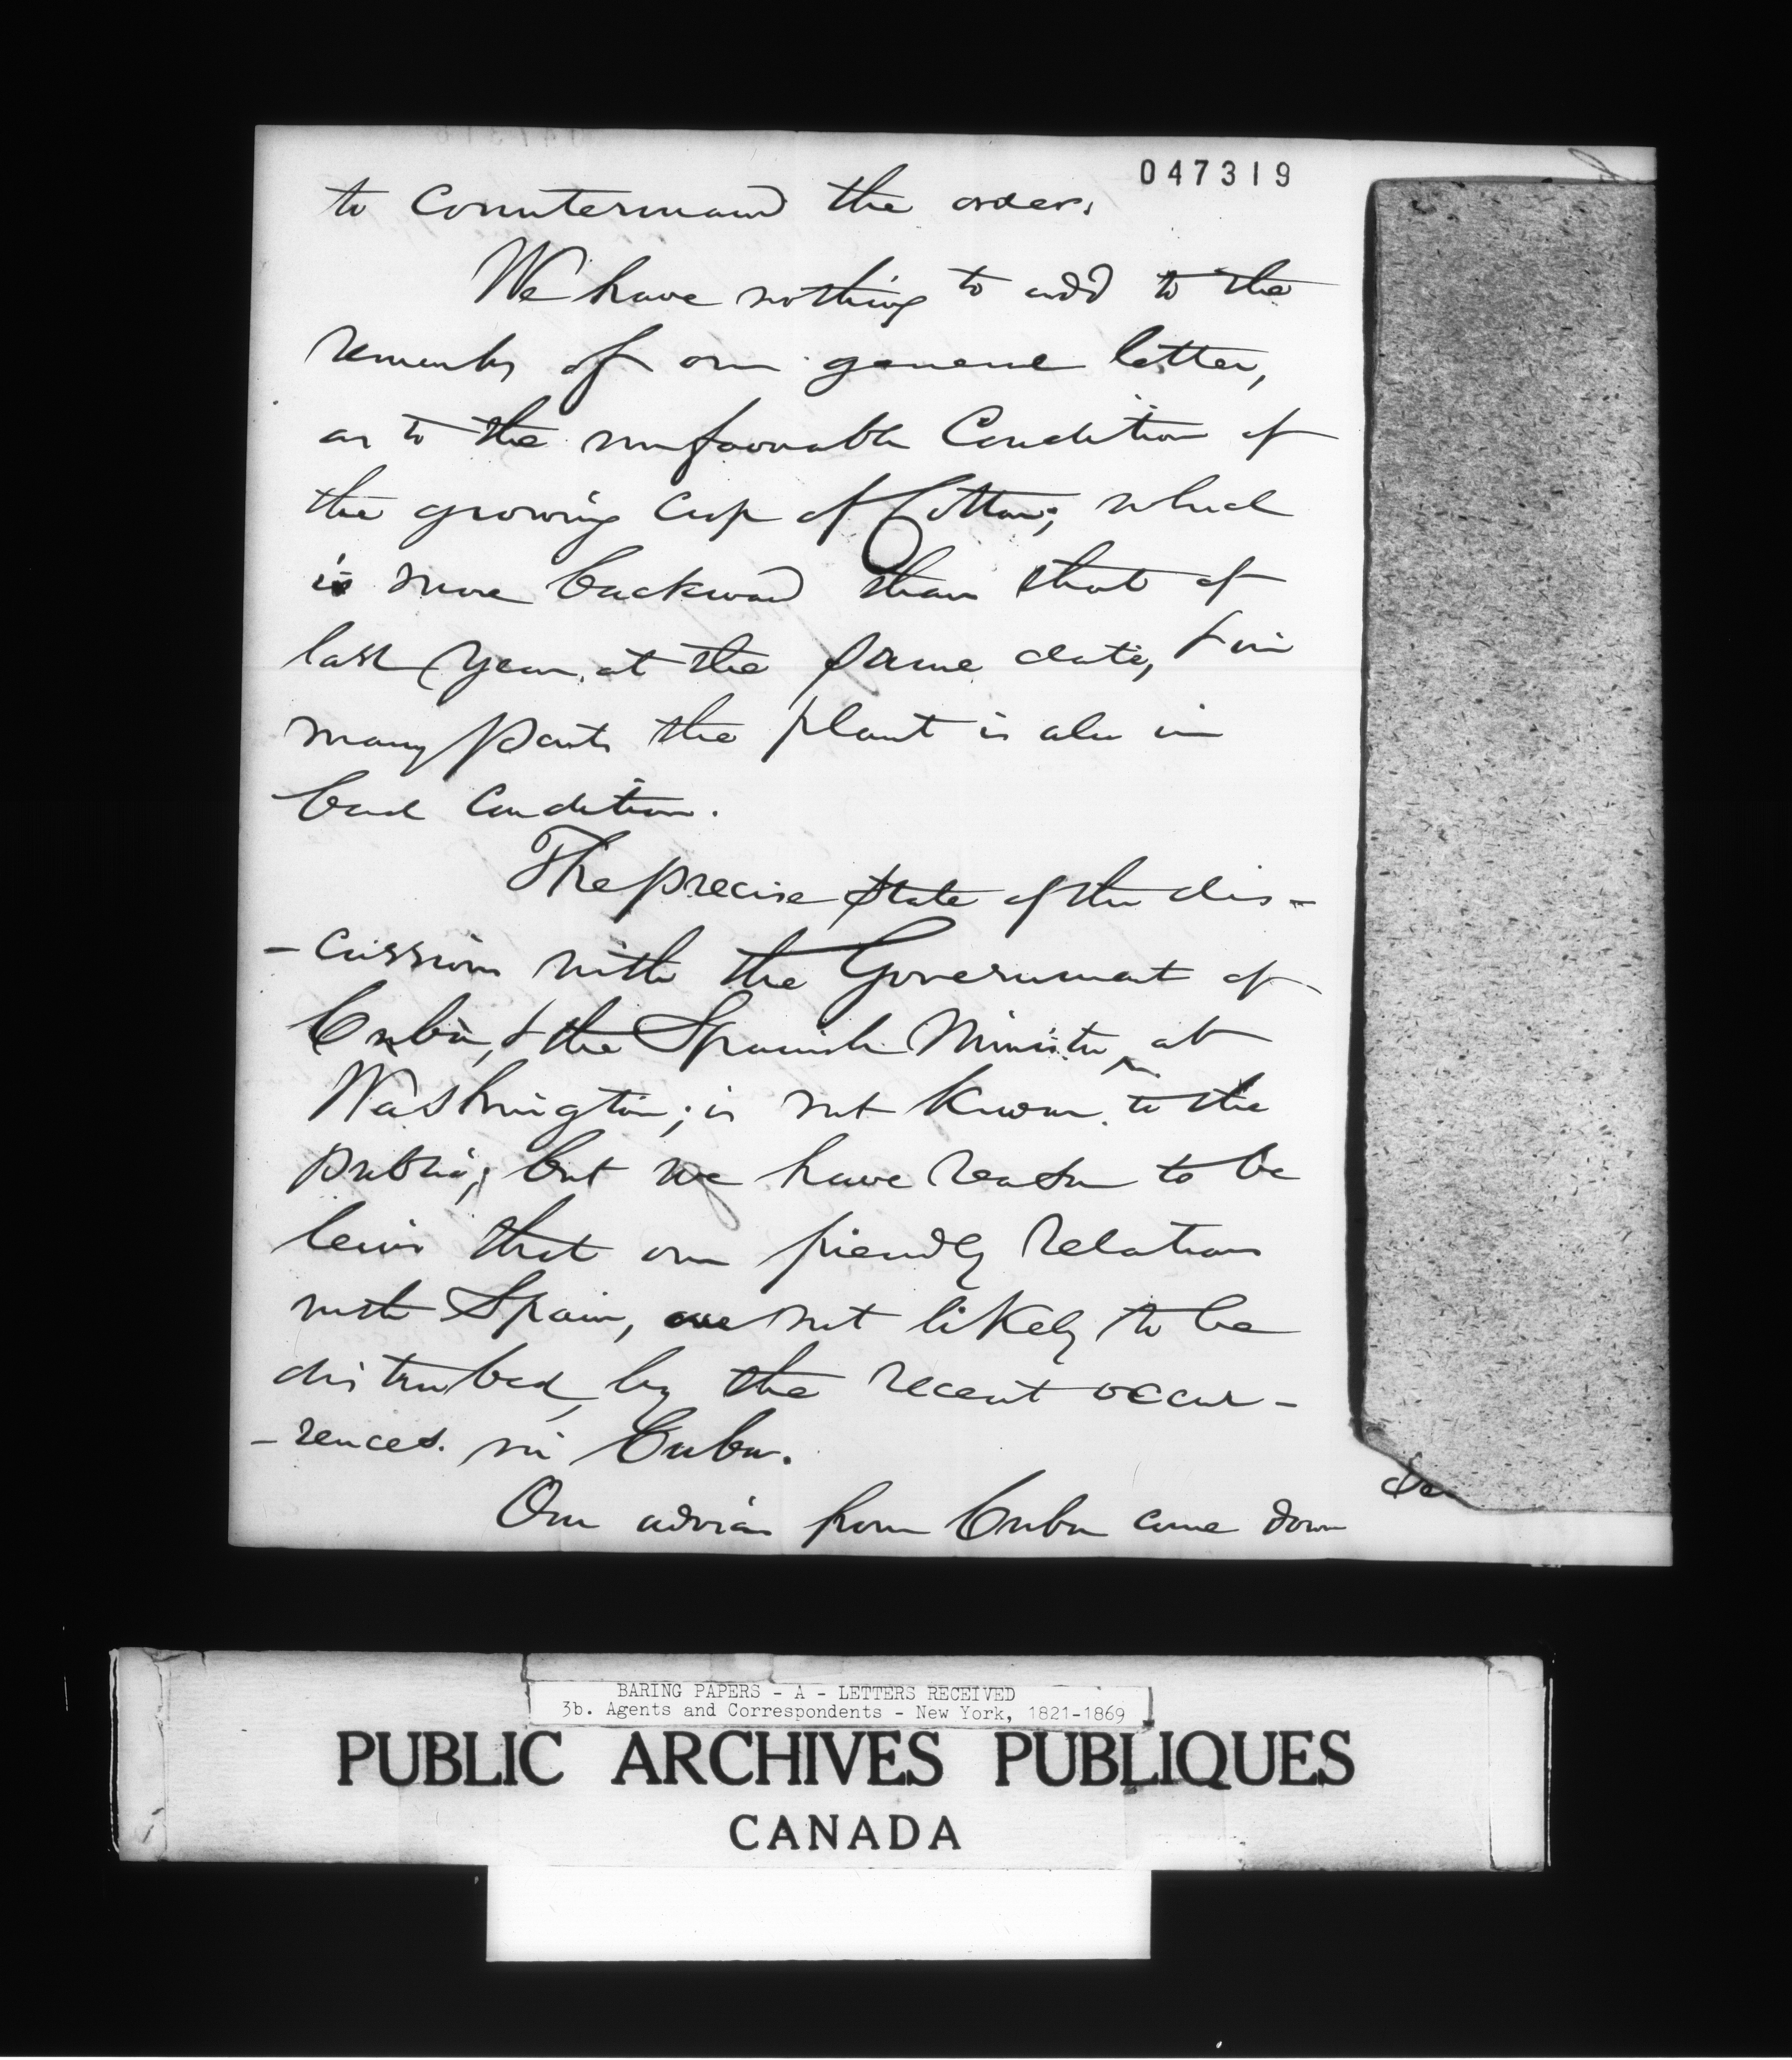 047319
to countermand the orders
We have nothing to add to the
remarks of our general letter,
as to the unfavorable Condition of
the growing Crop of Cotton; which
is more backward than that of
last year, at the same date, & in
many parts the plant is also in
bad Condition.
The precise state of the dis-
-cussion with the Government of
Cuba, & the Spanish Minister at
Washington; is not known to the
public; but we have reason to be
leive that our friendly relations
with Spain, are not likely to be
disturbed, by the recent occur-
-rences in Cuba.
Our advices from Cuba come down
BARING PAPERS - A - LETTERS RECEIVED
3b. Agents and Correspondents - New York, 1821-1869
PUBLIC ARCHIVES PUBLIQUES
CANADA